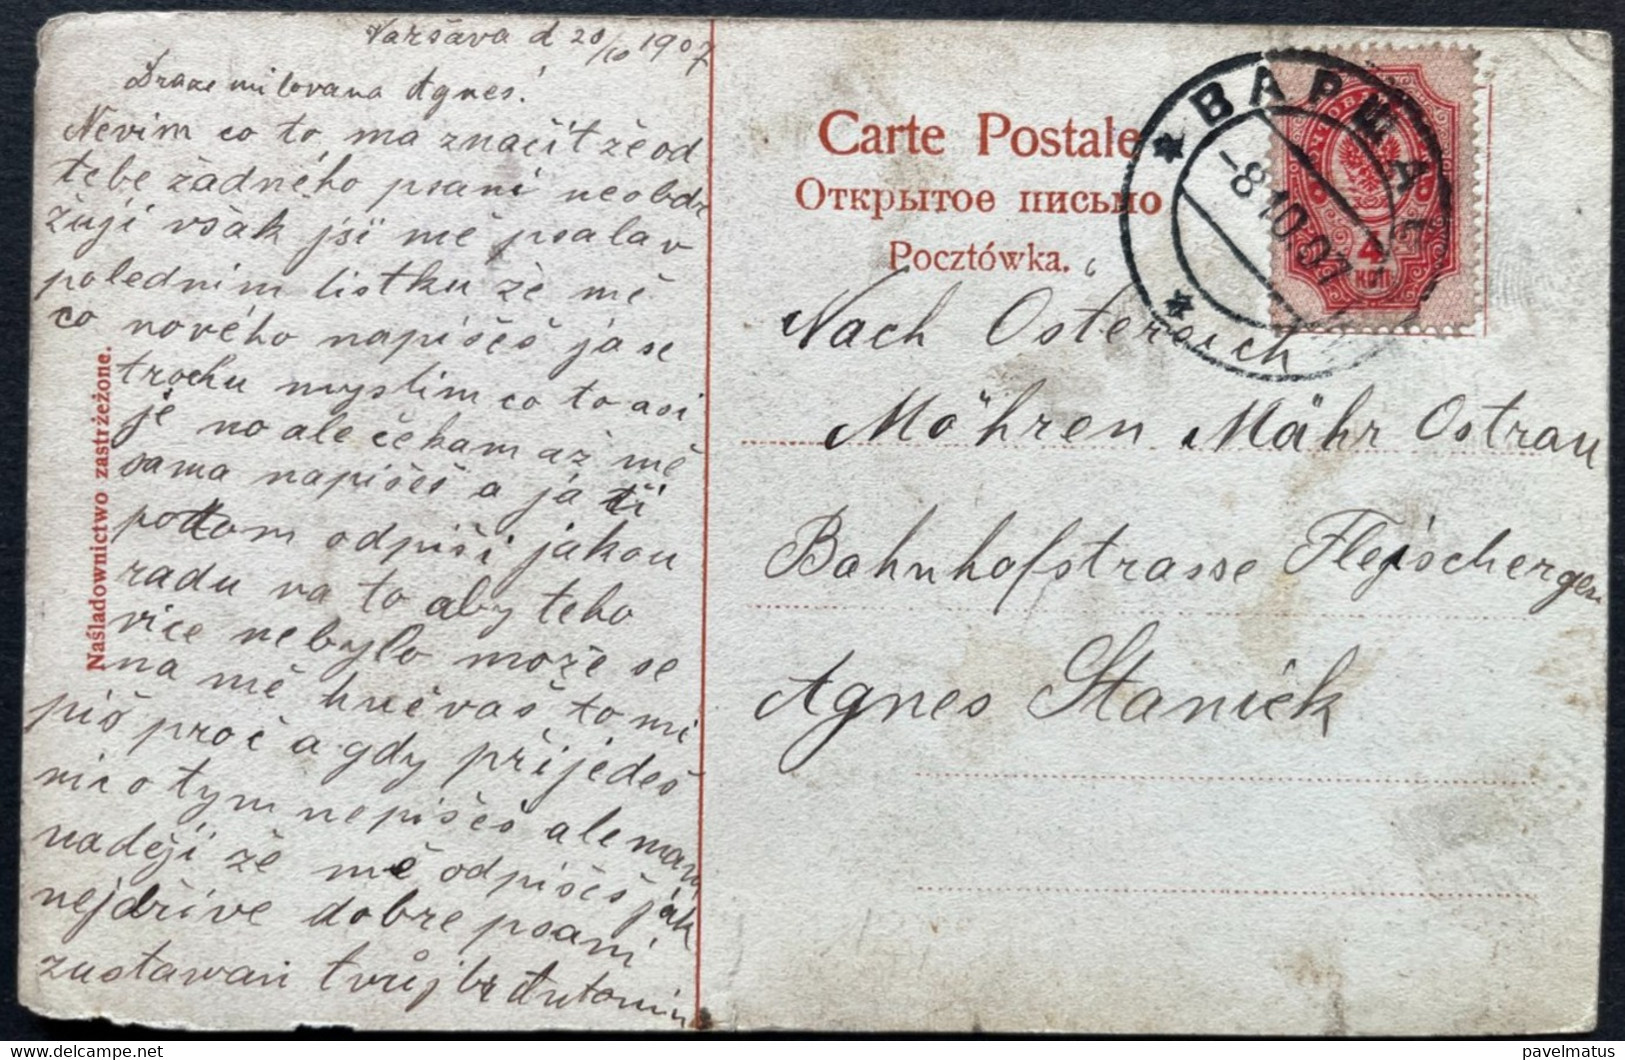 Varšava d 20/10 1907
Draze milovana Agnes!
Nevim co to ma značit že od
tebe žádného psani neobdr
žuji však jsi mě psala v
poledním listku že mě
co nového napišeš ja se
trochu myslim co to asi
je no ale čekam až mě
sama napišeš a já ti
potom odpiši jakou
radu na to aby toho
vice nebylo može se
na mě hněvaš to mi
piš proč a gdy přijedeš
nic o tym nepišeš ale mam
naději že mě odpišeš jak
nejdřive dobre psani
zustawan tvůj br Antonin
Naśladownictwo zastrzeżone.
Carte Postale
Открытое письмо
Pocztówka.
ВАРШАВА
-8 10 07
4
КОП
Nach Ostereich
Möhren Mähr Ostrau
Bahnhofstrasse Flejschergen
Agnes Staniek
pavelmatus
delcampe.net